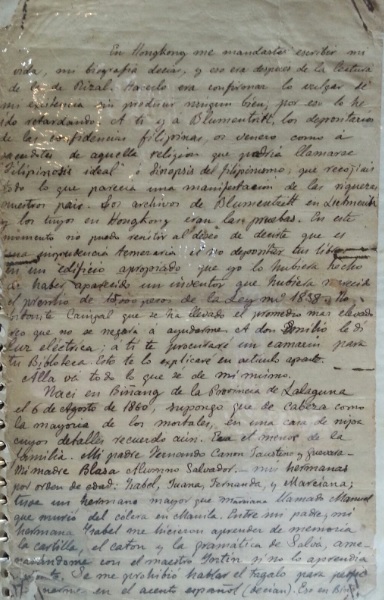 En Hongkong me mandaste escribir mi
vida, mi biografia decias, y eso era despues de la lectura
de la de Rizal. Hacerlo era confirmar lo vulgar de
mi existencia sin producir ningun bien, por eso lo he
retardando. A ti y a Blumentritt, los depositarios
de las confidencias filipinas, os venero como á
sacerdotes de aquella religion que podria llamarse
Filipinesis ideal ó sinopsis del filipinismo, que recogiais
todo lo que parecia una manifestacion de las riquezas
nuestro pais. Los archivos de Blumentritt en Leitmeritz
y los tuyos en Hongkong eran las pruebas. En este
momento no puedo resistir al deseo de decirte que es
una imprudencia temeraria el no depositar tus libros
en un edificio apropiado que yo lo hubiera hecho
de haber aparecido un inventor que hubiera merecido
el premio de 15000 pesos de la Ley nº 1838. No
obstante Campal que se ha llevado el promedio mas elevado
creo que no se negará á ayudarme. A don Emilio le di
luz electrica; á ti te procuraré un camarin para
tu Biblioteca. Esto te lo explicaré en articulo aparte.
Alla va todo lo que se de mi mismo.
Naci en Biñang de la Provincia de Lalaguna
el 6 de Agosto de 1860, supongo que de cabeza como
la mayoria de los mortales, en una casa de nipa
cuyos detalles recuerdo aún. Era el menor de la
familia. Mi padre Fernando Canon Faustino y Guevara.
Mi madre Blasa Alumno Salvador. mis hermanas
por orden de edad: Isabel, Juana, Fernanda, y Marciana;
tuve un hermano mayor que mi llamado Manuel
que murió del cólera en Manila. Entre mi padre, mi
hermana Isabel me hicieron aprender de memoria
la cartilla, el caton y la gramática de Salvá, ame-
nazándome con el maestro Fortin si no lo aprendia
Se me prohibió hablar el tagalo para perfec
en el acento español (decian). Eso en Biñ